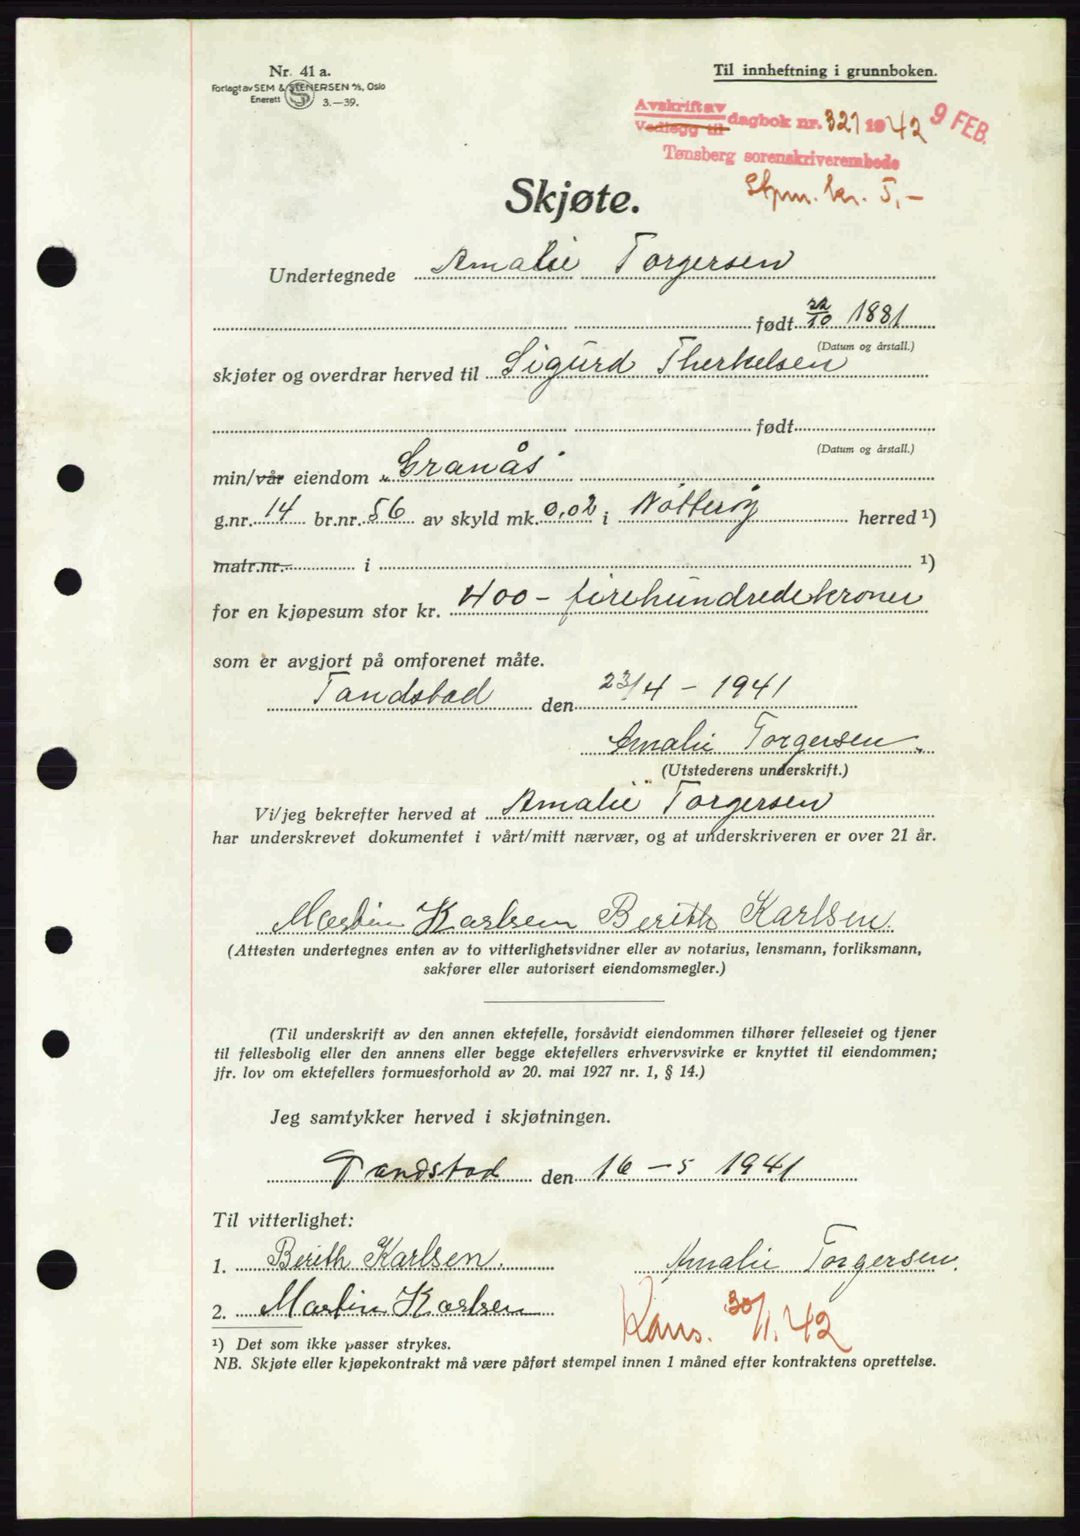 Nr. 41 a.
Forlagt av SEM & STENERSEN A/S, Oslo
Enerett S 3.—39.
Til innheftning i grunnboken.
Avskrift av
Vedlegg til dagbok nr. 321 1942 9 FEB.
Tønsberg sorenskriverembede
Stpm. kr. 5,-
Skjøte.
Undertegnede Amalie Torgersen
født 22/10 1881
(Datum og årstall.)
skjøter og overdrar herved til Sigurd Therkelsen
født
(Datum og årstall.)
min/vår eiendom „Granås"
g.nr. 14 br.nr. 56 av skyld mk. 0,02 i Nøtterøy herred ¹)
matr.nr. i ¹)
for en kjøpesum stor kr. 400 - firehundredekroner
som er avgjort på omforenet måte.
Tandstad den 23/4 - 1941
Amalie Torgersen.
(Utstederens underskrift.)
Vi/jeg bekrefter herved at Amalie Torgersen
har underskrevet dokumentet i vårt/mitt nærvær, og at underskriveren er over 21 år.
Martin Karlsen Berith Karlsen.
(Attesten undertegnes enten av to vitterlighetsvidner eller av notarius, lensmann, forliksmann,
sakfører eller autorisert eiendomsmegler.)
(Til underskrift av den annen ektefelle, forsåvidt eiendommen tilhører felleseiet og tjener
til fellesbolig eller den annens eller begge ektefellers erhvervsvirke er knyttet til eiendommen;
jfr. lov om ektefellers formuesforhold av 20. mai 1927 nr. 1, § 14.)
Jeg samtykker herved i skjøtningen.
Tandstad den 16 - 5 1941
Til vitterlighet:
1. Berith Karlsen. Amalie Torgersen.
2. Martin Karlsen
Kons. 30/1.42
¹) Det som ikke passer strykes.
NB. Skjøte eller kjøpekontrakt må være påført stempel innen 1 måned efter kontraktens oprettelse.